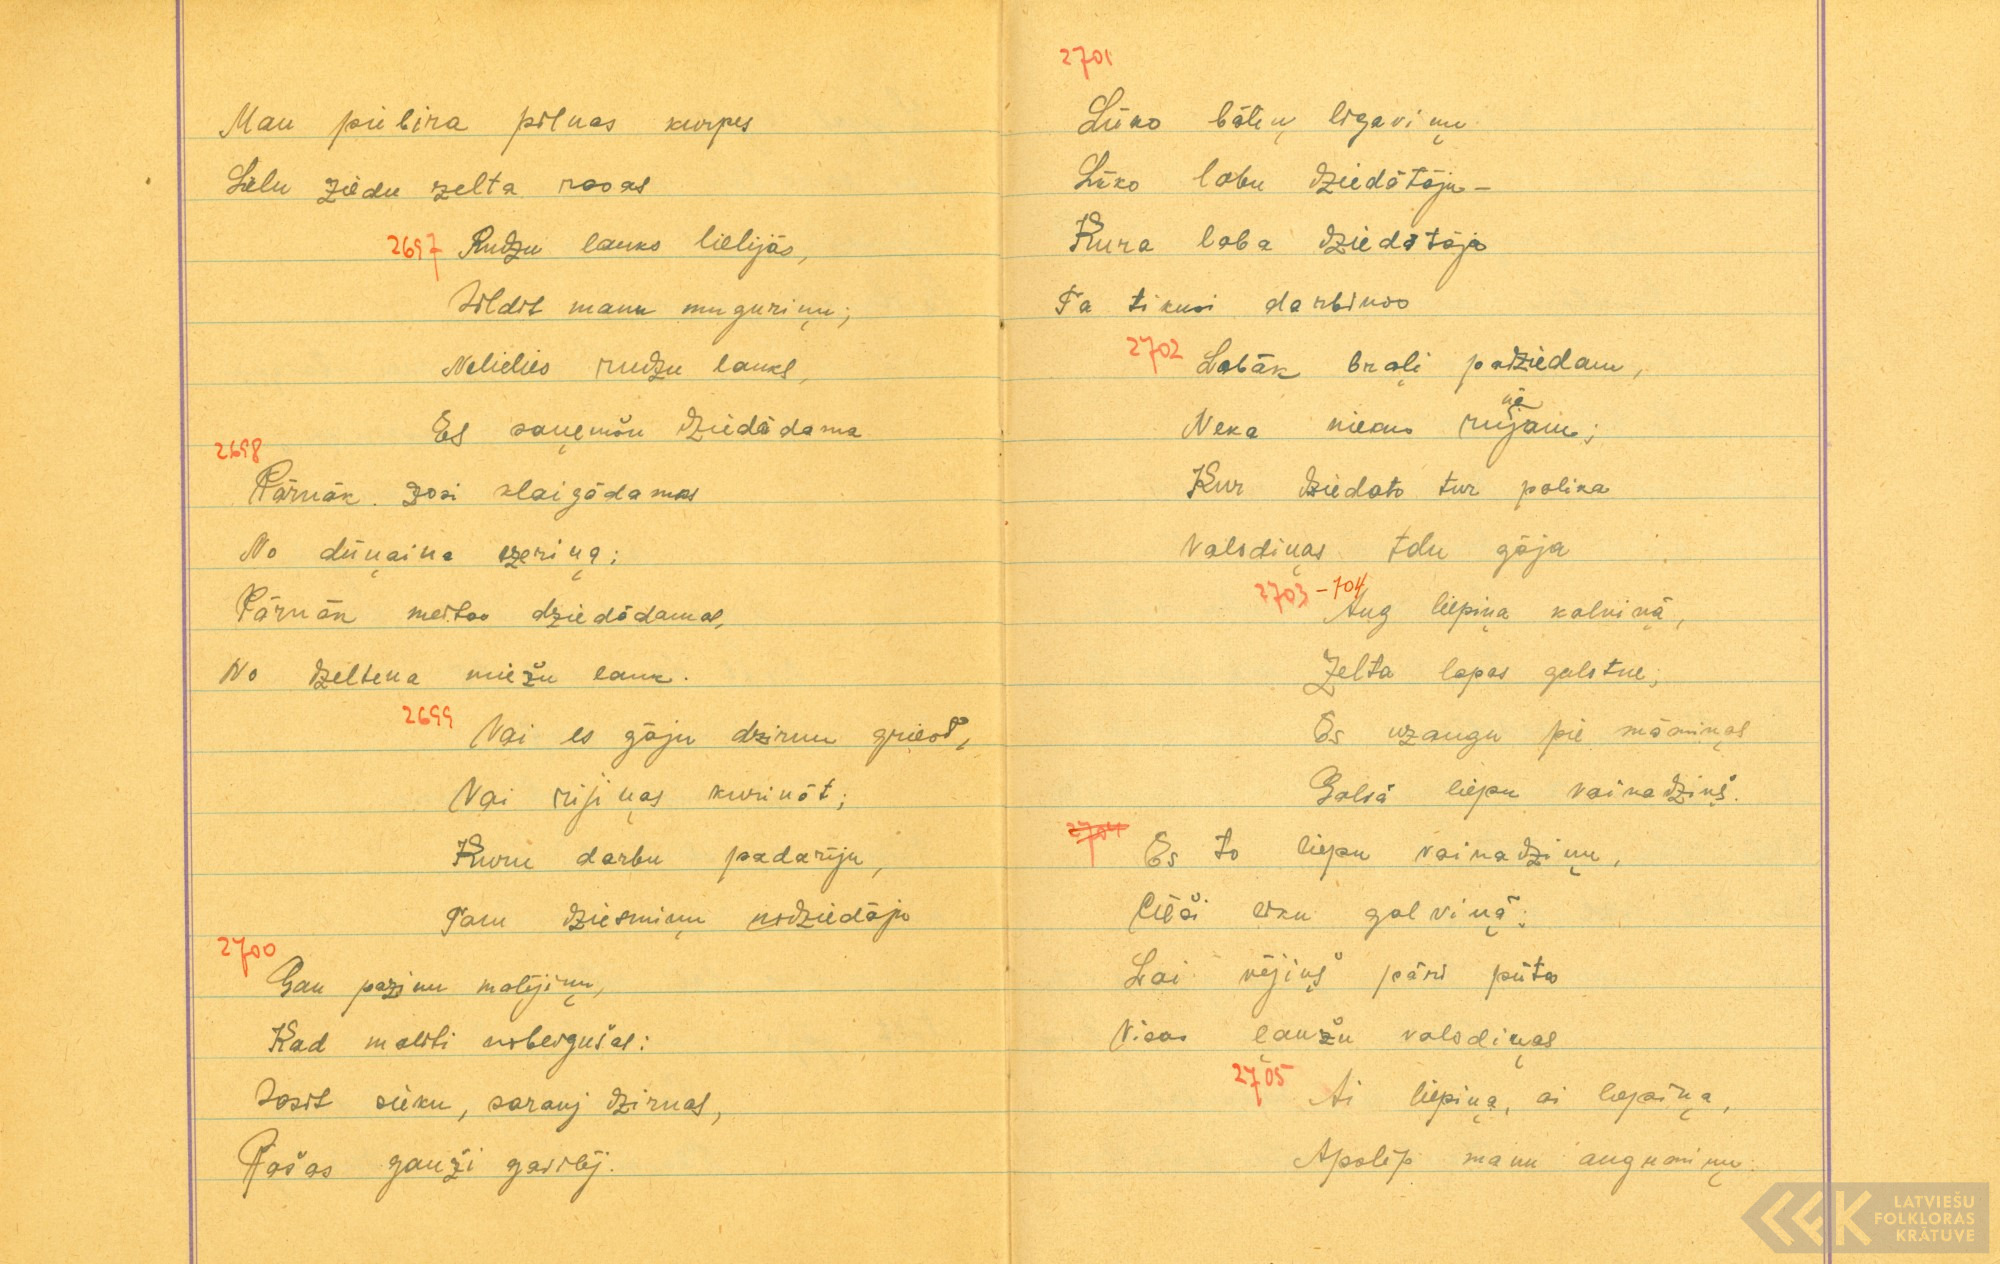 Man piebira pilnas kurpes
Lielu ziedu zelta rasas
2697 Rudzu lauks lielijās,
Sildit manu muguriņu;
Nelielies rudzu lauks,
Es saņemšu dziedādama
2698
Pārnāk zosi klaigādamas
No dūņaina ezeriņa;
Pārnāk meitas dziedādamas,
No dzeltena miežu lauk.
2699 Vai es gāju dzirnu griest,
Vai rijiņas kurināt;
Kuru darbu padariju,
Tam dziesmiņu nodziedāju
2700
Gan pazinu malējiņu,
Kad malsti nobeigušas:
Sasit sieku, sarauj dzirnas,
Pašas gauži gavilēj.
2701
Lūko bāliņ ligaviņu
Lūko labu dziedātāju –
Kura laba dziedātāja
Ta tikusi darbinos
2702 Labāk braļi padziedam,
ņā
Neka niekus runjam;
Kur dziedato tur palika
Valodiņas tālu gāja
2703 – 704
Aug liepiņa kalniņā,
Zelta lapas galotnē;
Es uzaugu pie māmiņas
Galvā liepu vainadziņš.
2704 Es to liepu vainadziņu,
Cieši liku galviņā;
Lai vējiņš pāri pūta
Visas ļaužu valodiņas
2705 Ai liepiņa, ai liepiņa,
Apalēp manu augumiņu.
LATVIEŠU
FOLKLORAS
KRĀTUVE